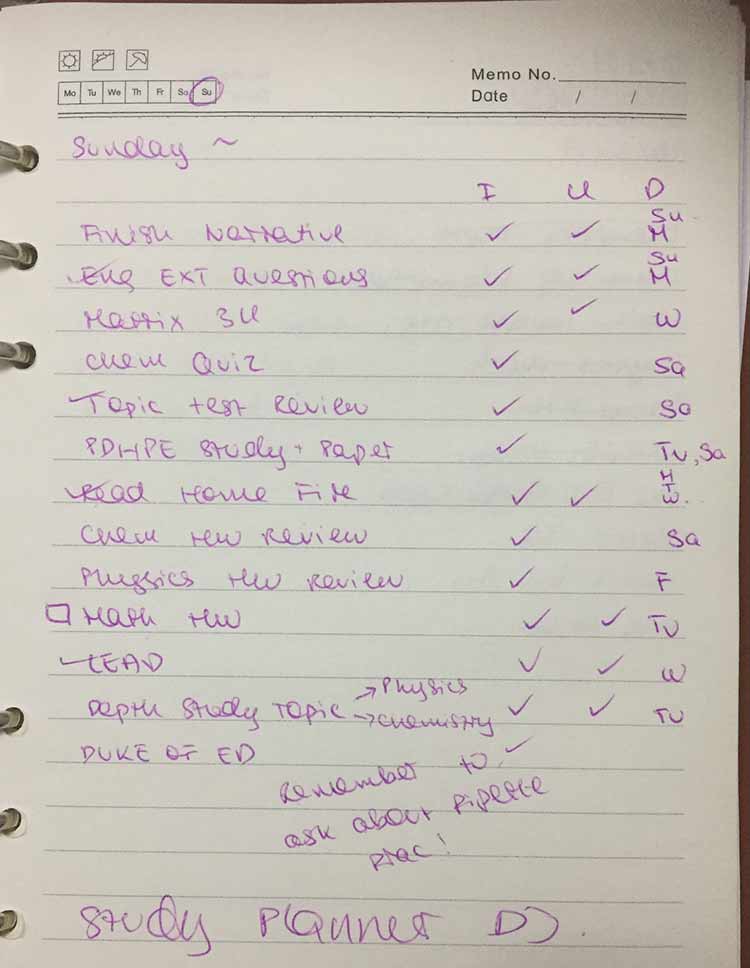 Memo No.
Mo Tu We Th Fr Sa Su
Date / /
Sunday ~
I U D
Finish Narrative ✓ ✓ Su M
Eng EXT Questions ✓ ✓ Su M
Matrix 3U ✓ ✓ W
Chem Quiz ✓ Sa
Topic test Review ✓ Sa
PDHPE Study + Paper ✓ Tu, Sa
Read Home Fire ✓ ✓ M T W.
Chem HW Review ✓ Sa
Physics HW Review ✓ F
Math HW ✓ ✓ Tu
LEAD ✓ ✓ W
Depth Study Topic → Physics → Chemistry ✓ ✓ Tu
DUKE OF ED ✓
Remember to
ask about pipette
prac!
Study Planner D).